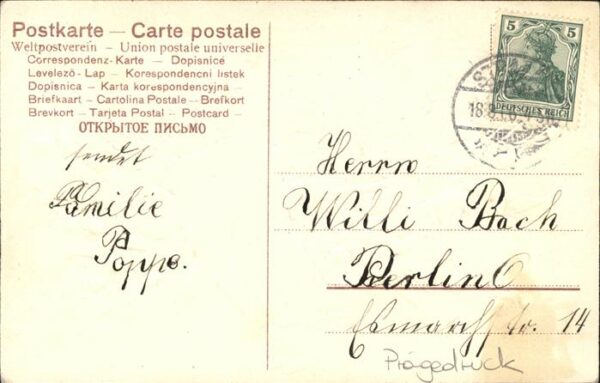 Postkarte — Carte postale
Weltpostverein – Union postale universelle
Correspondenz-Karte – Dopisnice
Levelező-Lap – Korespondencni listek
Dopisnica – Karta korespondencyjna –
Briefkaart – Cartolina Postale – Brefkort
Brevkort – Tarjeta Postal – Postcard –
ОТКРЫТОЕ ПИСЬМО
5 5
DEUTSCHES REICH
sendet
Familie
Poppe.
Herrn
Willi Bach
Berlin O
Esmarchstr. 14
Prägedruck